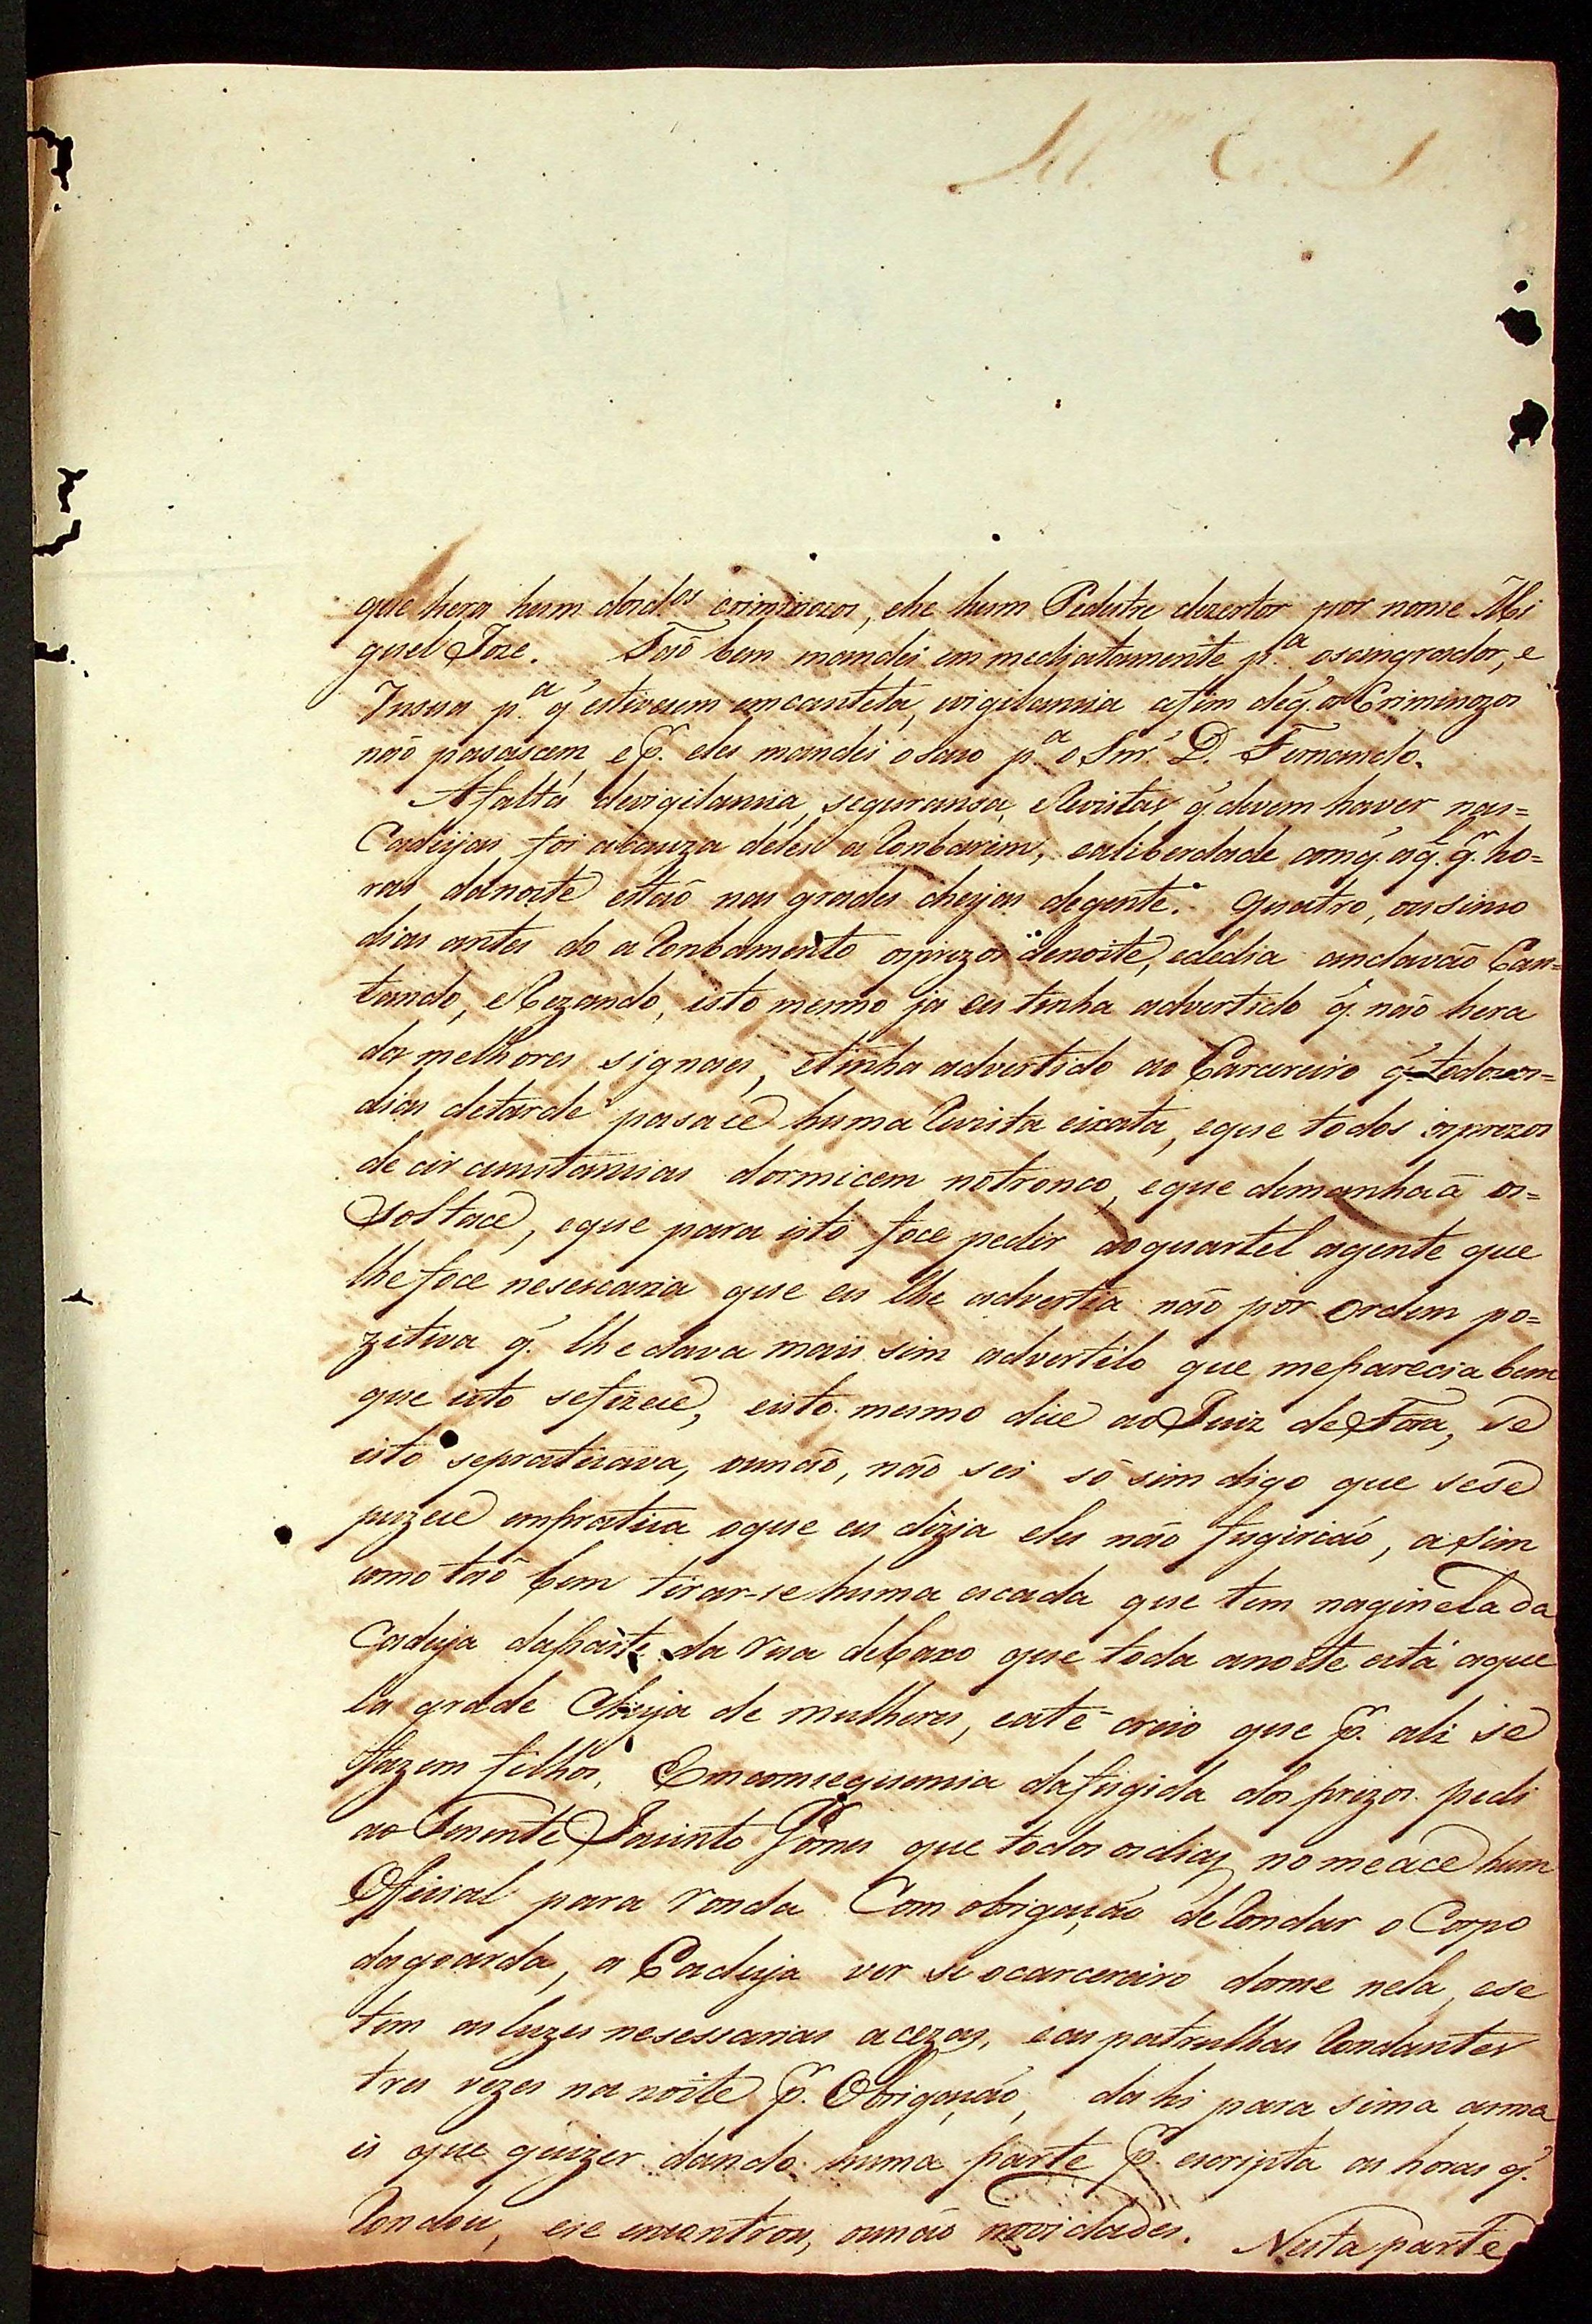 que hera hum dos d.os criminozos, ehe hum Pedestre dezertor por nome Mi
guel Joze. Taõ bem mandei em medjatamente p.a osangrador, e
Insua p.a q' estivecem emcautéla, evigilancia afim deq' os Criminozos
não pasascem, e p.r eles mandei osaco p.a o Snr' D. Fernando.
Afalta devigilancia, seguransa, eRevistas q' devem haver nas=
Cadeijas foi acauza deles aRonbarem, ealiberdade comq' aq.l q.r ho=
ras danoite estaõ nas grades cheijas degente. Quatro, ou sinco
dias antes do aRonbamento osprezos denoite, ededia andavaõ Can=
tando, eRezando, isto mesmo ja eu tinha advertido q' não hera
dos melhores signaes, etinha advertido ao Carcereiro q' todos os=
dias detarde pasace huma Revista eixata, eque todos osprezos
de circunstâncias dormicem notronco, eque demanhaã os=
soltace, eque para isto foce pedir aoquartel agente que
lhe foce nesescaria que eu lhe advertia não por ordem po=
zitiva q' lhe dava mais sim advertilo que meparecia bem
que isto sefizece, eisto mesmo dice ao Juiz de Fora, se
isto sepraticava, ounão, não sei só sim digo que sese
puzece empratica oque eu dizia eles não fugiriaõ, asim
como taõ bem tirar-se huma escada que tem naginela da
Cadeija daparte da rua debaxo que toda anoite está aque
la grade Cheija de mulheres, eaté creio que p.r ali se
fazem filhos. Emcomsequencia dafugida dos prezos pedi
ao Tenente Jacinto Gomes que todos osdias nomeace hum
Oficial para ronda Com obrigaçaõ deRondar o Corpo
dagoarda, a Cadeija ver se ocarcereiro dorme nela, ese
tem asluzes nesessarias acezas, eas patrulhas Rondantes
tres vezes na noite p.r Obrigaçaõ, dahi para sima asma
is que quizer dando huma parte p.r escripta as horas q'
Rondou, ese encontrou, ounão novidades. Nesta parte